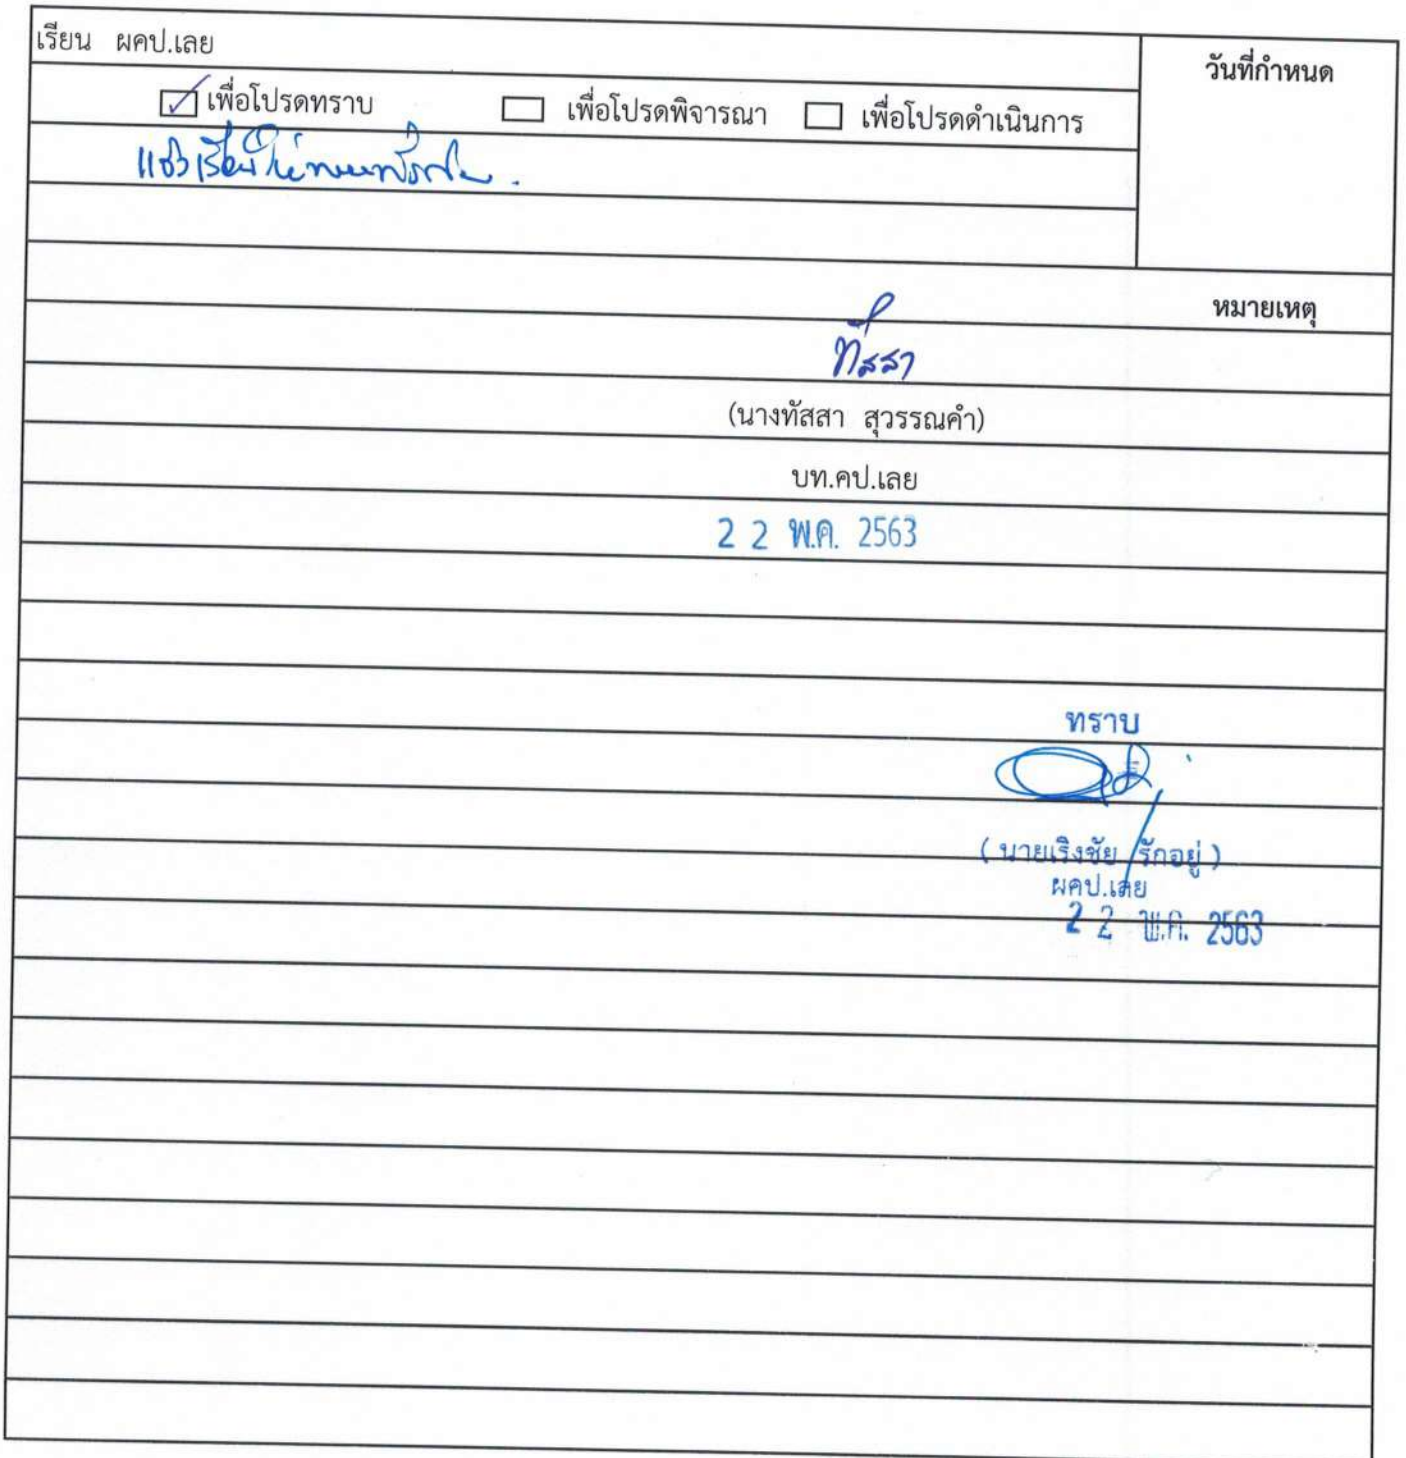 เรียน ผคป.เลย
วันที่กำหนด
เพื่อโปรดทราบ เพื่อโปรดพิจารณา เพื่อโปรดดำเนินการ
หมายเหตุ
ทัสสา
(นางทัสสา สุวรรณคำ)
บท.คป.เลย
22 พ.ค. 2563
ทราบ
(นายเริงชัย รักอยู่)
ผคป.เลย
22 พ.ค. 2563